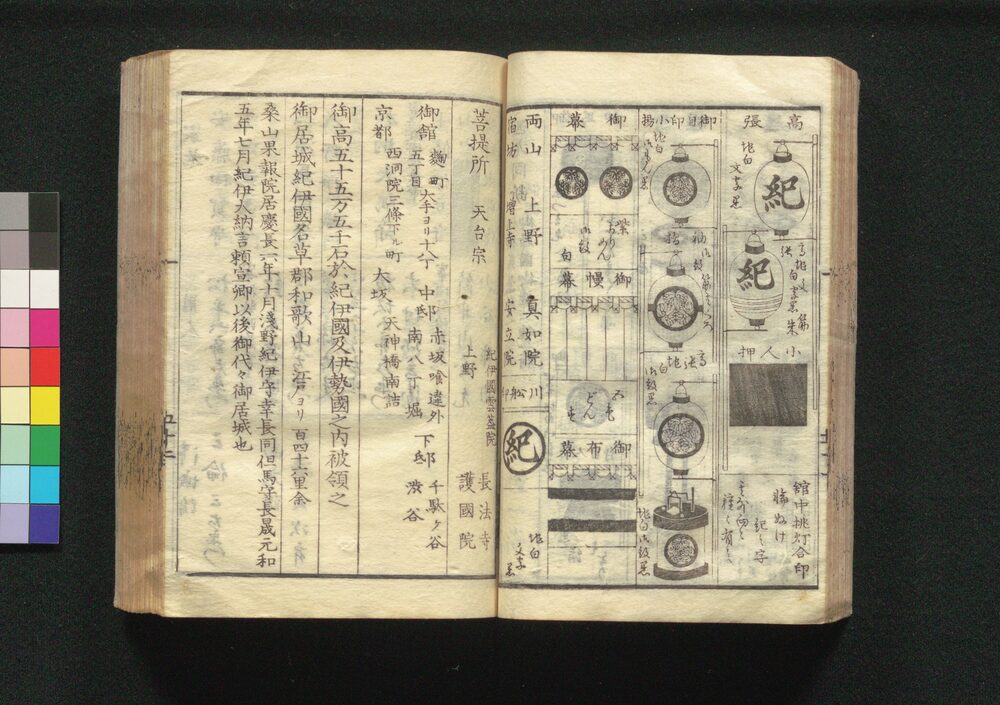 高張
紀
地白
文字黒
紀
小人押
舘中挑灯合印
紀之字
御自印小揚
地白
袖
揚
高張地白
御紋黒
地白御紋黒
御幕
紫
おりもん
御紋
白
御幔幕
どんす
御布幕
両山
上野
真如院
宿坊
増上寺
安立院
川
舩
印
紀
地白
文字黒
菩提所
天台宗
紀伊國雲蓋院
上野
長法寺
護國院
御舘
麹町
五丁目
大手ヨリ十八丁
中邸
赤坂喰違外
南八丁堀
下邸
千駄ヶ谷
渋谷
京都
西洞院三條下ル町
大坂
天神橋南詰
御高五十五万五千石於紀伊國及伊勢國之内被領之
御居城紀伊國名草郡和歌山
江戸ヨリ
百四十六里余
桑山果報院居慶長六年十月淺野紀伊守幸長同但馬守長晟元和
五年七月紀伊大納言頼宣卿以後御代々御居城也